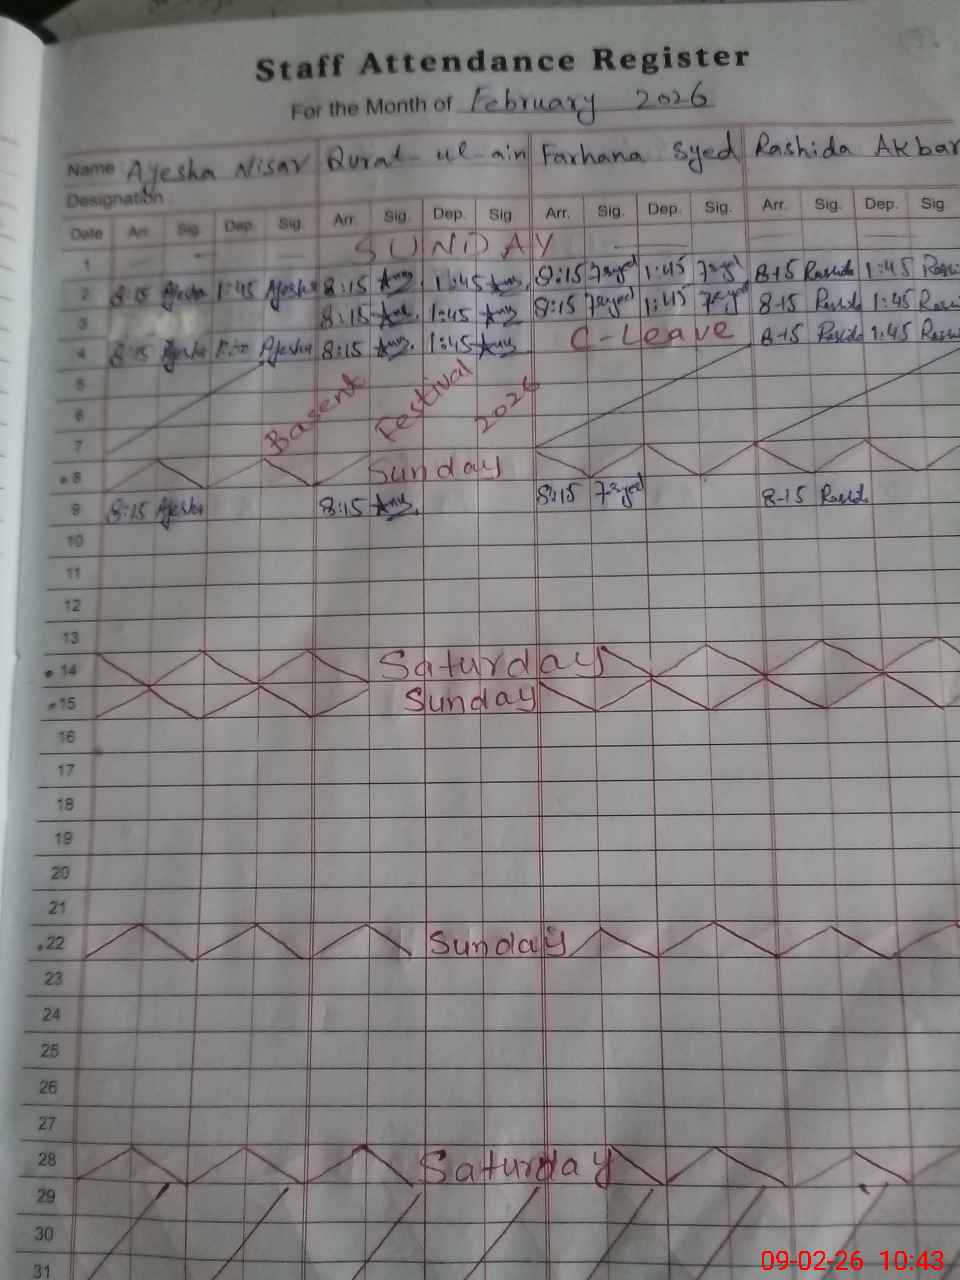 Staff Attendance Register
For the Month of February 2026
Name Ayesha Nisar Qurat ul ain Farhana Syed Rashida Akbar
Designation
Date Arr. Sig. Dep. Sig. Arr. Sig. Dep. Sig. Arr. Sig. Dep. Sig. Arr. Sig. Dep. Sig
1 SUNDAY
2 8:15 Ayesha 1:45 Ayesha 8:15 1:45 8:15 1:45 8-15 Rashid 1:45
3 8:15 1:45 8:15 1:45 8-15 Rashid 1:45
4 8:15 Ayesha Ayesha 8:15 1:45 C-Leave 8-15 Rashid 1:45
5
6 Basent Festival 2026
7
8 Sunday
9 8:15 Ayesha 8:15 8:15 8-15 Rashid
10
11
12
13
14 Saturday
15 Sunday
16
17
18
19
20
21
22 Sunday
23
24
25
26
27
28 Saturday
29
30
31
09-02-26 10:43